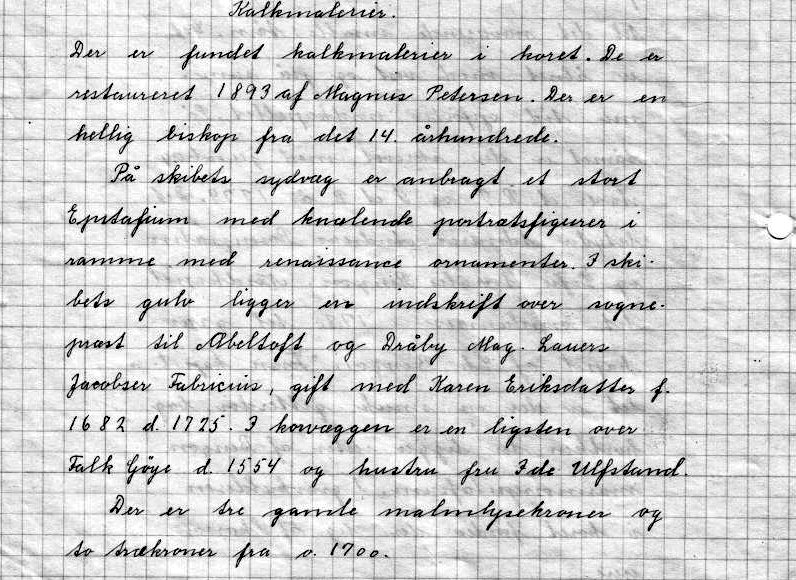 Kalkmalerier.
Der er fundet kalkmalerier i koret. De er
restaureret 1893 af Magnus Petersen. Der er en
hellig biskop fra det 14. århundrede.
På skibets sydvæg er anbragt et stort
Epitafium med knælende portrætsfigurer i
ramme med renaissance ornamenter. I ski-
bets gulv ligger en indskrift over sogne-
præst til Æbeltoft og Dråby Mag. Lauers
Jacobser Fabricius, gift med Karen Eriksdatter f.
1682 d. 1725. I korvæggen er en ligsten over
Falk Göye d. 1554 og hustru fru Ide Ulfstand.
Der er tre gamle malmlysekroner og
to trækroner fra o. 1700.